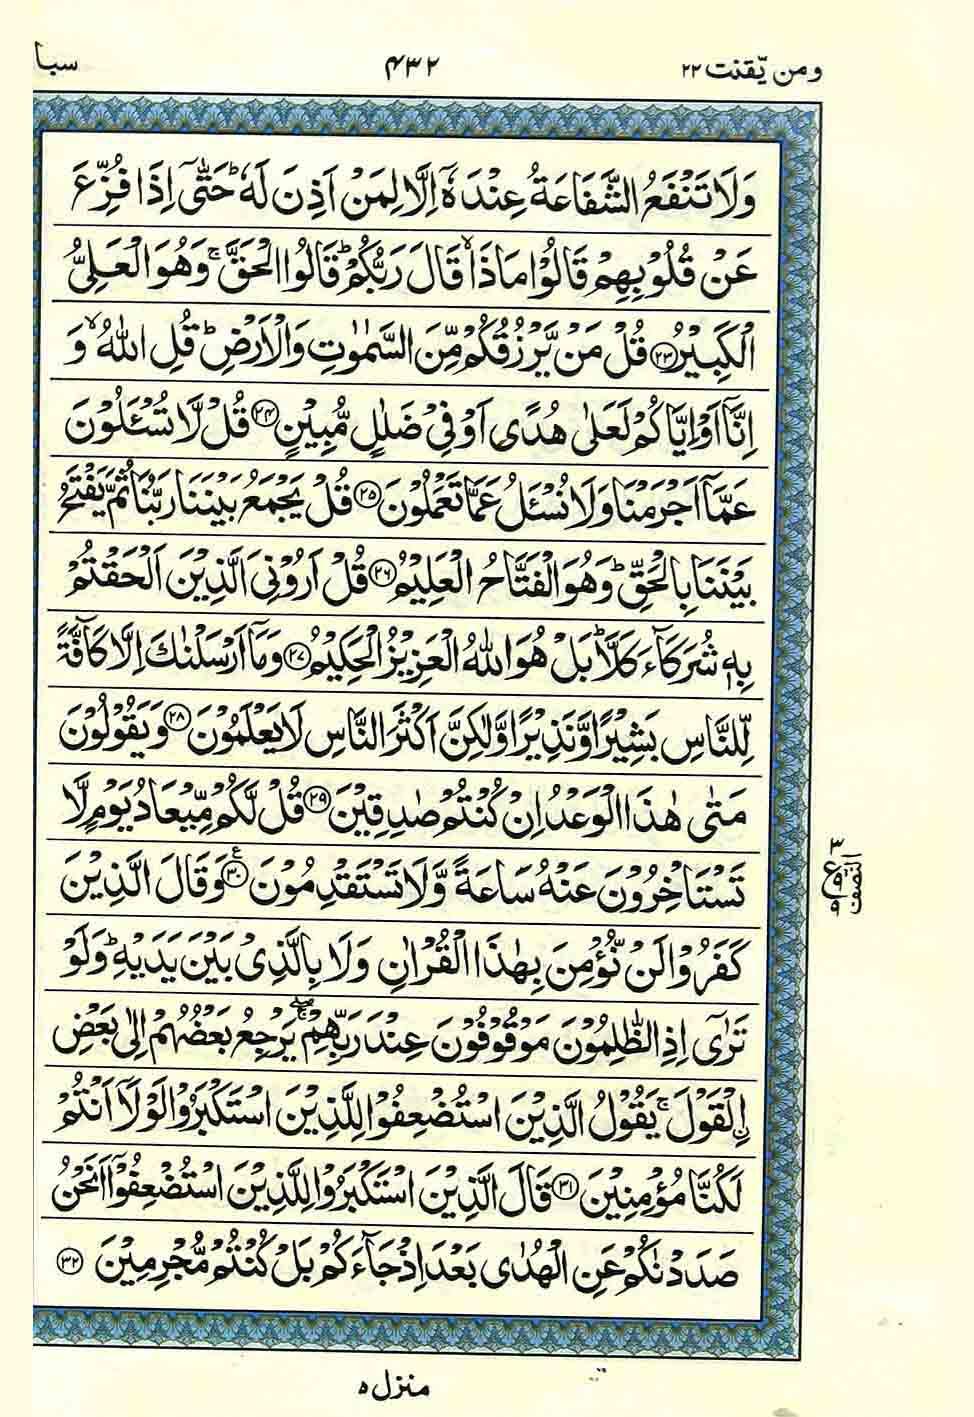 ومن يّقنت ٢٢
٤٣٢
سبا
وَلَا تَنْفَعُ الشَّفَاعَةُ عِنْدَهٗۤ اِلَّا لِمَنْ اَذِنَ لَهٗ ؕ حَتّٰۤى اِذَا فُزِّعَ
عَنْ قُلُوْبِهِمْ قَالُوْا مَاذَا ۙ قَالَ رَبُّكُمْ ؕ قَالُوا الْحَقَّ ۚ وَهُوَ الْعَلِىُّ
الْكَبِيْرُ ﴿۲۳﴾ قُلْ مَنْ يَّرْزُقُكُمْ مِّنَ السَّمٰوٰتِ وَالْاَرْضِ ؕ قُلِ اللّٰهُ ۙ وَ
اِنَّاۤ اَوْ اِيَّاكُمْ لَعَلٰى هُدًى اَوْ فِىْ ضَلٰلٍ مُّبِيْنٍ ﴿۲۴﴾ قُلْ لَّا تُسْـَٔلُوْنَ
عَمَّاۤ اَجْرَمْنَا وَلَا نُسْـَٔلُ عَمَّا تَعْمَلُوْنَ ﴿۲۵﴾ قُلْ يَجْمَعُ بَيْنَنَا رَبُّنَا ثُمَّ يَفْتَحُ
بَيْنَنَا بِالْحَقِّ ؕ وَهُوَ الْفَتَّاحُ الْعَلِيْمُ ﴿۲۶﴾ قُلْ اَرُوْنِىَ الَّذِيْنَ اَلْحَقْتُمْ
بِهٖ شُرَكَآءَ كَلَّا ؕ بَلْ هُوَ اللّٰهُ الْعَزِيْزُ الْحَكِيْمُ ﴿۲۷﴾ وَمَاۤ اَرْسَلْنٰكَ اِلَّا كَآفَّةً
لِّلنَّاسِ بَشِيْرًا وَّنَذِيْرًا وَّلٰكِنَّ اَكْثَرَ النَّاسِ لَا يَعْلَمُوْنَ ﴿۲۸﴾ وَيَقُوْلُوْنَ
مَتٰى هٰذَا الْوَعْدُ اِنْ كُنْتُمْ صٰدِقِيْنَ ﴿۲۹﴾ قُلْ لَّكُمْ مِّيْعَادُ يَوْمٍ لَّا
تَسْتَاْخِرُوْنَ عَنْهُ سَاعَةً وَّلَا تَسْتَقْدِمُوْنَ ﴿۳۰﴾ ع وَقَالَ الَّذِيْنَ
كَفَرُوْا لَنْ نُّؤْمِنَ بِهٰذَا الْقُرْاٰنِ وَلَا بِالَّذِىْ بَيْنَ يَدَيْهِ ؕ وَلَوْ
تَرٰۤى اِذِ الظّٰلِمُوْنَ مَوْقُوْفُوْنَ عِنْدَ رَبِّهِمْ ۖۚ يَرْجِعُ بَعْضُهُمْ اِلٰى بَعْضِ
ِۨالْقَوْلَ ۚ يَقُوْلُ الَّذِيْنَ اسْتُضْعِفُوْا لِلَّذِيْنَ اسْتَكْبَرُوْا لَوْلَاۤ اَنْتُمْ
لَكُنَّا مُؤْمِنِيْنَ ﴿۳۱﴾ قَالَ الَّذِيْنَ اسْتَكْبَرُوْا لِلَّذِيْنَ اسْتُضْعِفُوْۤا اَنَحْنُ
صَدَدْنٰكُمْ عَنِ الْهُدٰى بَعْدَ اِذْ جَآءَكُمْ بَلْ كُنْتُمْ مُّجْرِمِيْنَ ﴿۳۲﴾
٣
ع
٩
٩
النصف
منزل ٥